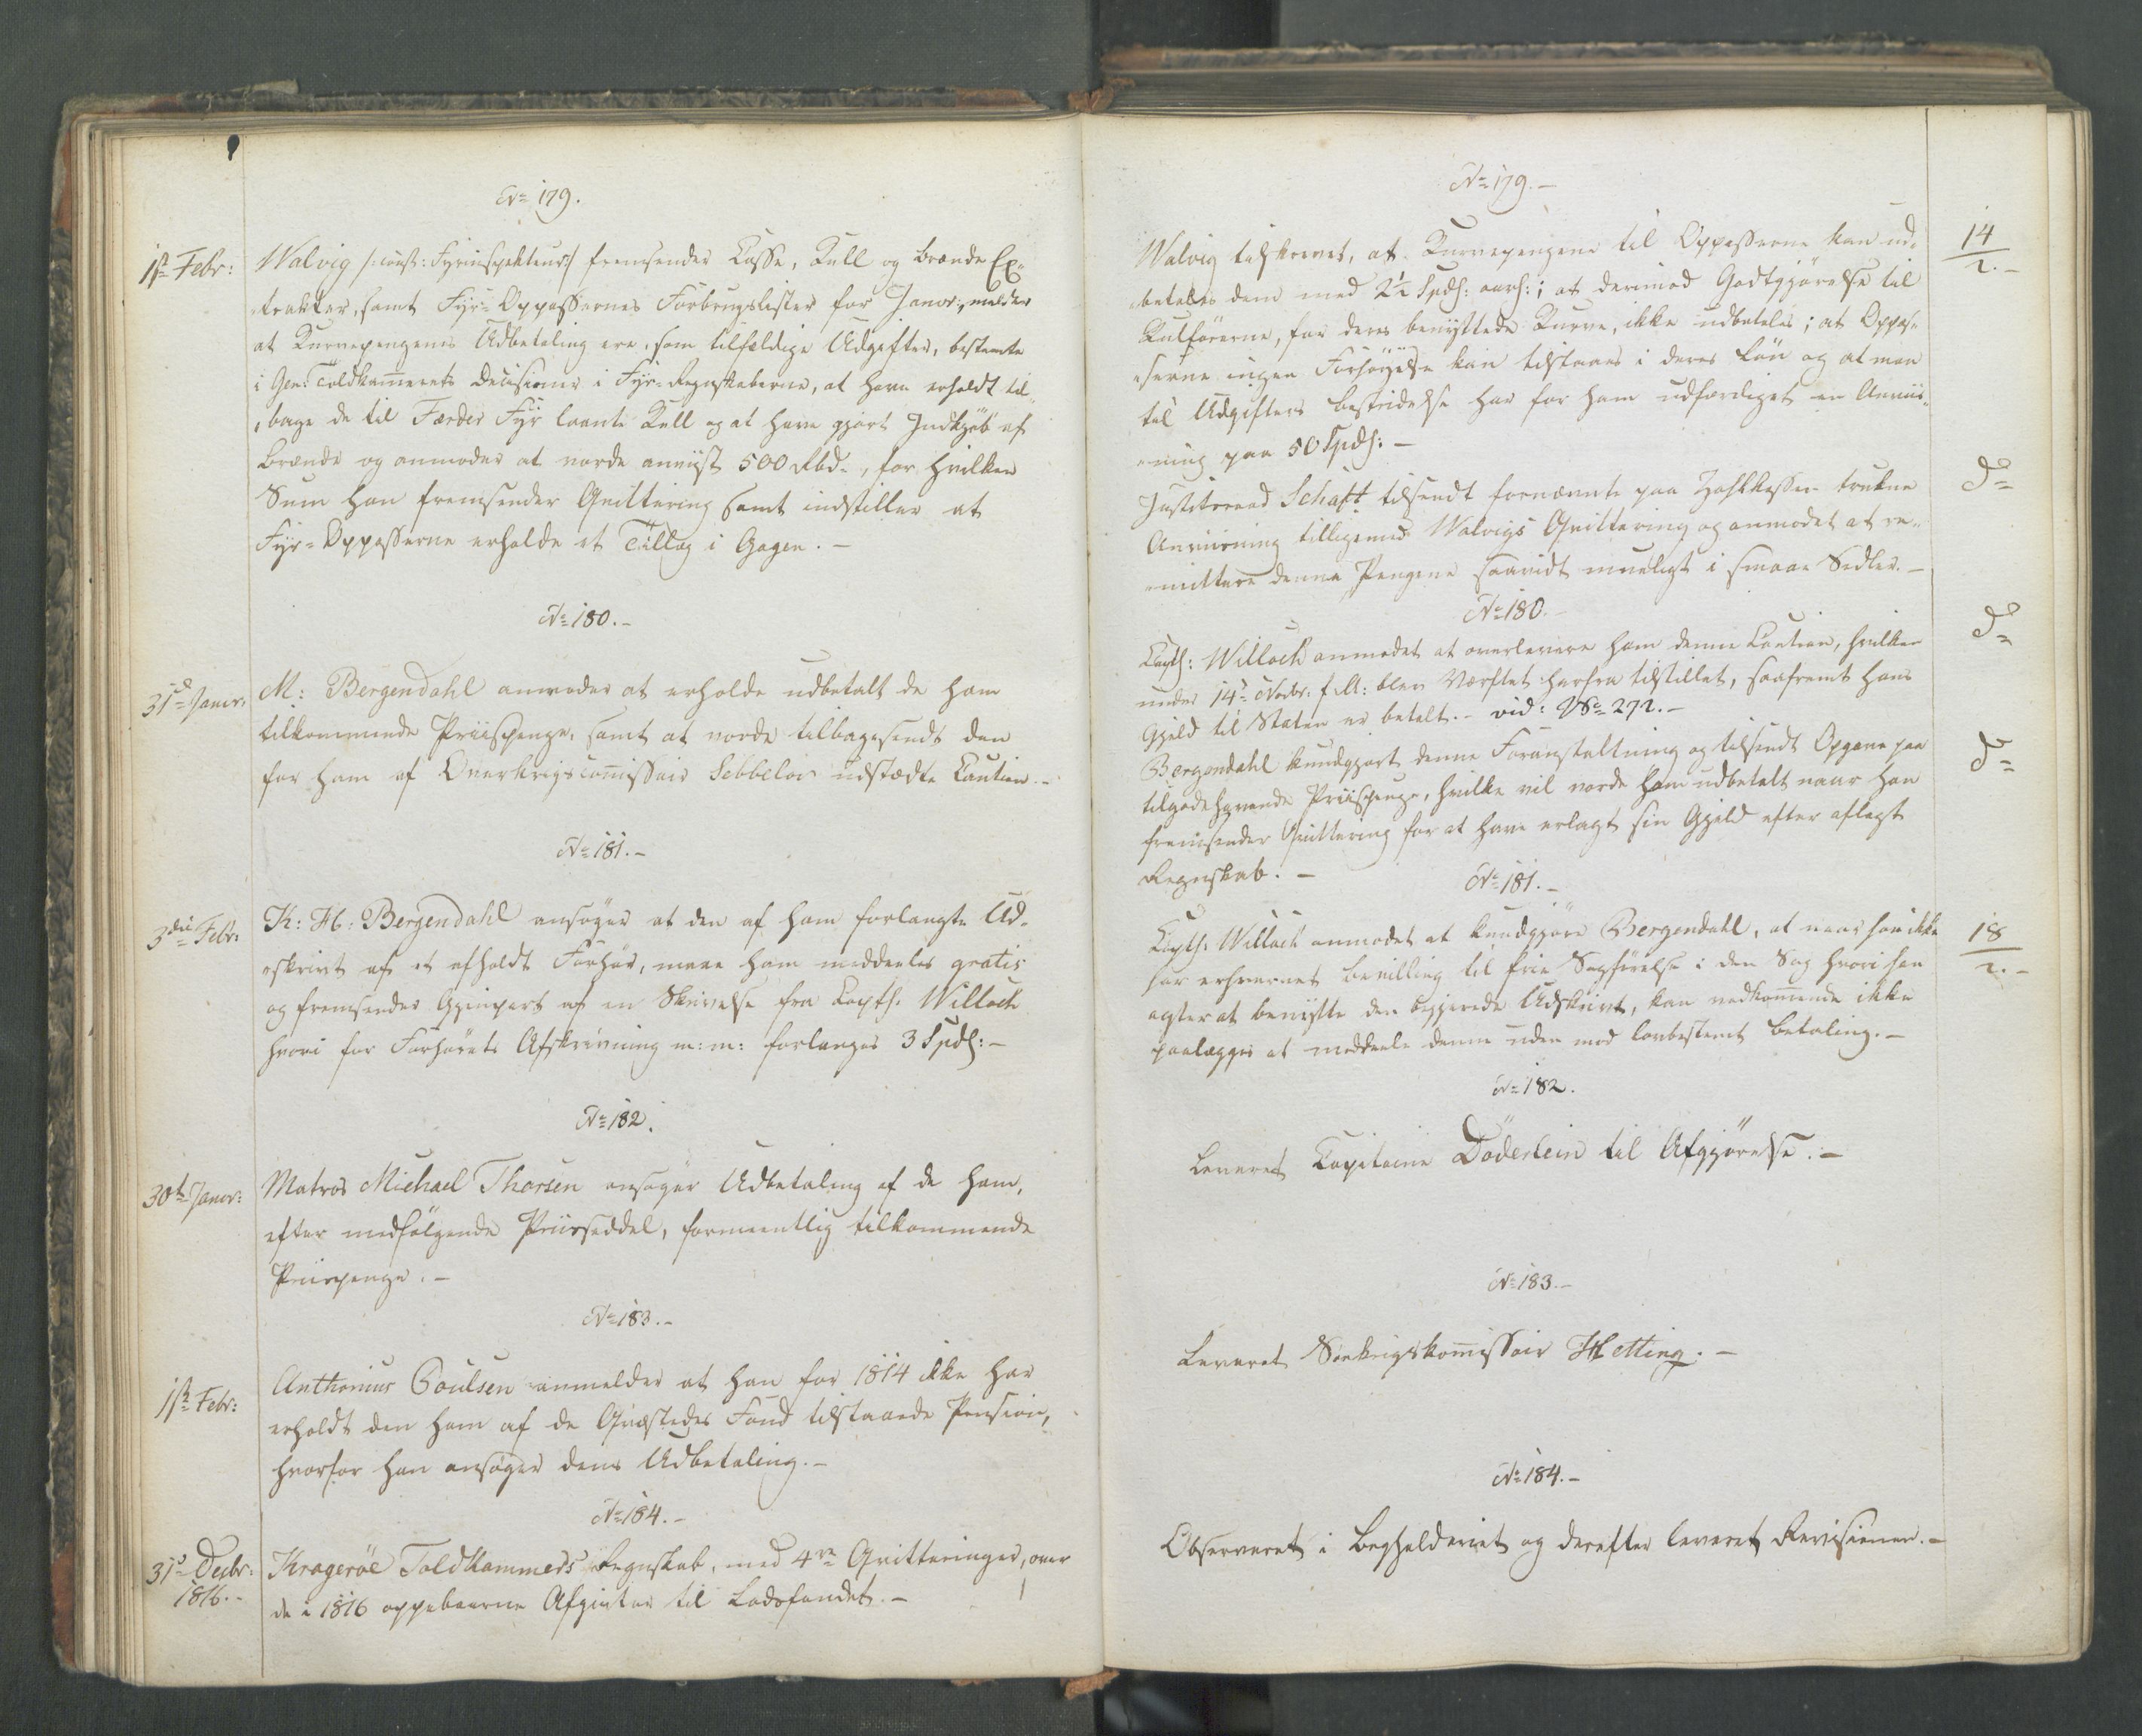 No 179.
1ste Febr: Walvig /:const: Fyrinspekteur:/ fremsender Casse, Kull og Brænde Ex-
trakter, samt Fyr-Oppassernes Forbrugslister for Janvr:, melder
at Kurvepengenes Udbetaling ere, som tilfeldige Udgifter, bestemte
i Gen: Toldkammerets Decisioner i Fyr-Regnskaberne, at have erholdt til-
bage de til Færder Fyr laante Kull og at have gjort Indkjöb af
Brænde og anmoder at vorde anviist 500 Rbd-, for hvilken
Sum han fremsender Qvittering samt indstiller at
Fyr-Oppasserne erholde et Tillæg i Gagen. -
No 180. -
31te Janvr: M: Bergendahl anmoder at erholde udbetalt de ham
tilkommende Priispenge, samt at vorde tilbagesendt den
for ham af Overkrigscommissair Sebbelov udstædte Caution. -
No 181. -
3die Febr: K: H: Bergendahl ansöger at den af ham forlangte Ud-
skrivt af et afholdt Forhör, maae ham meddeeles gratis
og fremsender Gjenpart af en Skrivelse fra Capth. Willoch
hvori for Forhörets Afskrivning m: m: forlanges 3 Spdl: -
No 182.
30te Janvr: Matros Michael Thorsen ansöger Udbetaling af de ham,
efter medfölgende Priisseddel, formeentlig tilkommende
Priispenge. -
No 183. -
1ste Febr: Anthonius Poulsen anmelder at han for 1814 ikke har
erholdt den ham af de Qvæstedes Fond tilstaaede Pension,
hvorfor han ansöger dens Udbetaling. -
No 184. -
31te Decbr: Kragerøe Toldkammers Regnskab, med 4re Qvitteringer, over
1816. - de i 1816 oppebaarne Afgivter til Lodsfondet. -
No 179. -
Walvig tilskrevet, at Kurvepengene til Oppasserne kan ud- 14
betales dem med 2½ Spdl: aarl:; at derimod Godtgjörelse til 2. -
Kulförerne, for deres benyttede Kurve, ikke udbetales; at Oppas-
serne ingen Forhöyelse kan tilstaaes i deres Lön og at man
til Udgifters Bestridelse har for ham udfærdiget en Anviis-
ning paa 50 Spdl: -
Justitsraad Schaft tilsendt fornævnte paa Zahlkassen trukne do
Anviisning tilligemed Walvigs Qvittering og anmodet at re-
mittere denne Pengene saavidt mueligt i smaae Sedler. -
No 180. -
Capth: Willoch anmodet at overlevere ham denne Caution, hvilken do
under 14de Novbr: f. A: blev Værftet herfra tilstillet, saafremt hans
Gjeld til Staten er betalt. - vid: No 272. -
Bergendahl kundgjort denne Foranstaltning og tilsendt Opgave paa do
tilgodehavende Priispenge, hvilke vil vorde ham udbetalt naar han
fremsender Qvittering for at have erlagt sin Gjeld efter aflagt
Regnskab. -
No 181. -
Capth: Willoch anmodet at kundgjöre Bergendahl, at naar han ikke 18
har erhvervet Bevilling til frie Sagförelse i den Sag hvori han 2. -
agter at benytte den begjerede Udskrivt, kan vedkommende ikke
paalægges at meddeele denne uden mod lovbestemt Betaling. -
No 182.
Leveret Capitaine Döderlein til Afgjörelse. -
No 183. -
Leveret Söekrigskommissair Hetting. -
No 184. -
Observeret i Bogholderiet og derefter leveret Revisionen. -